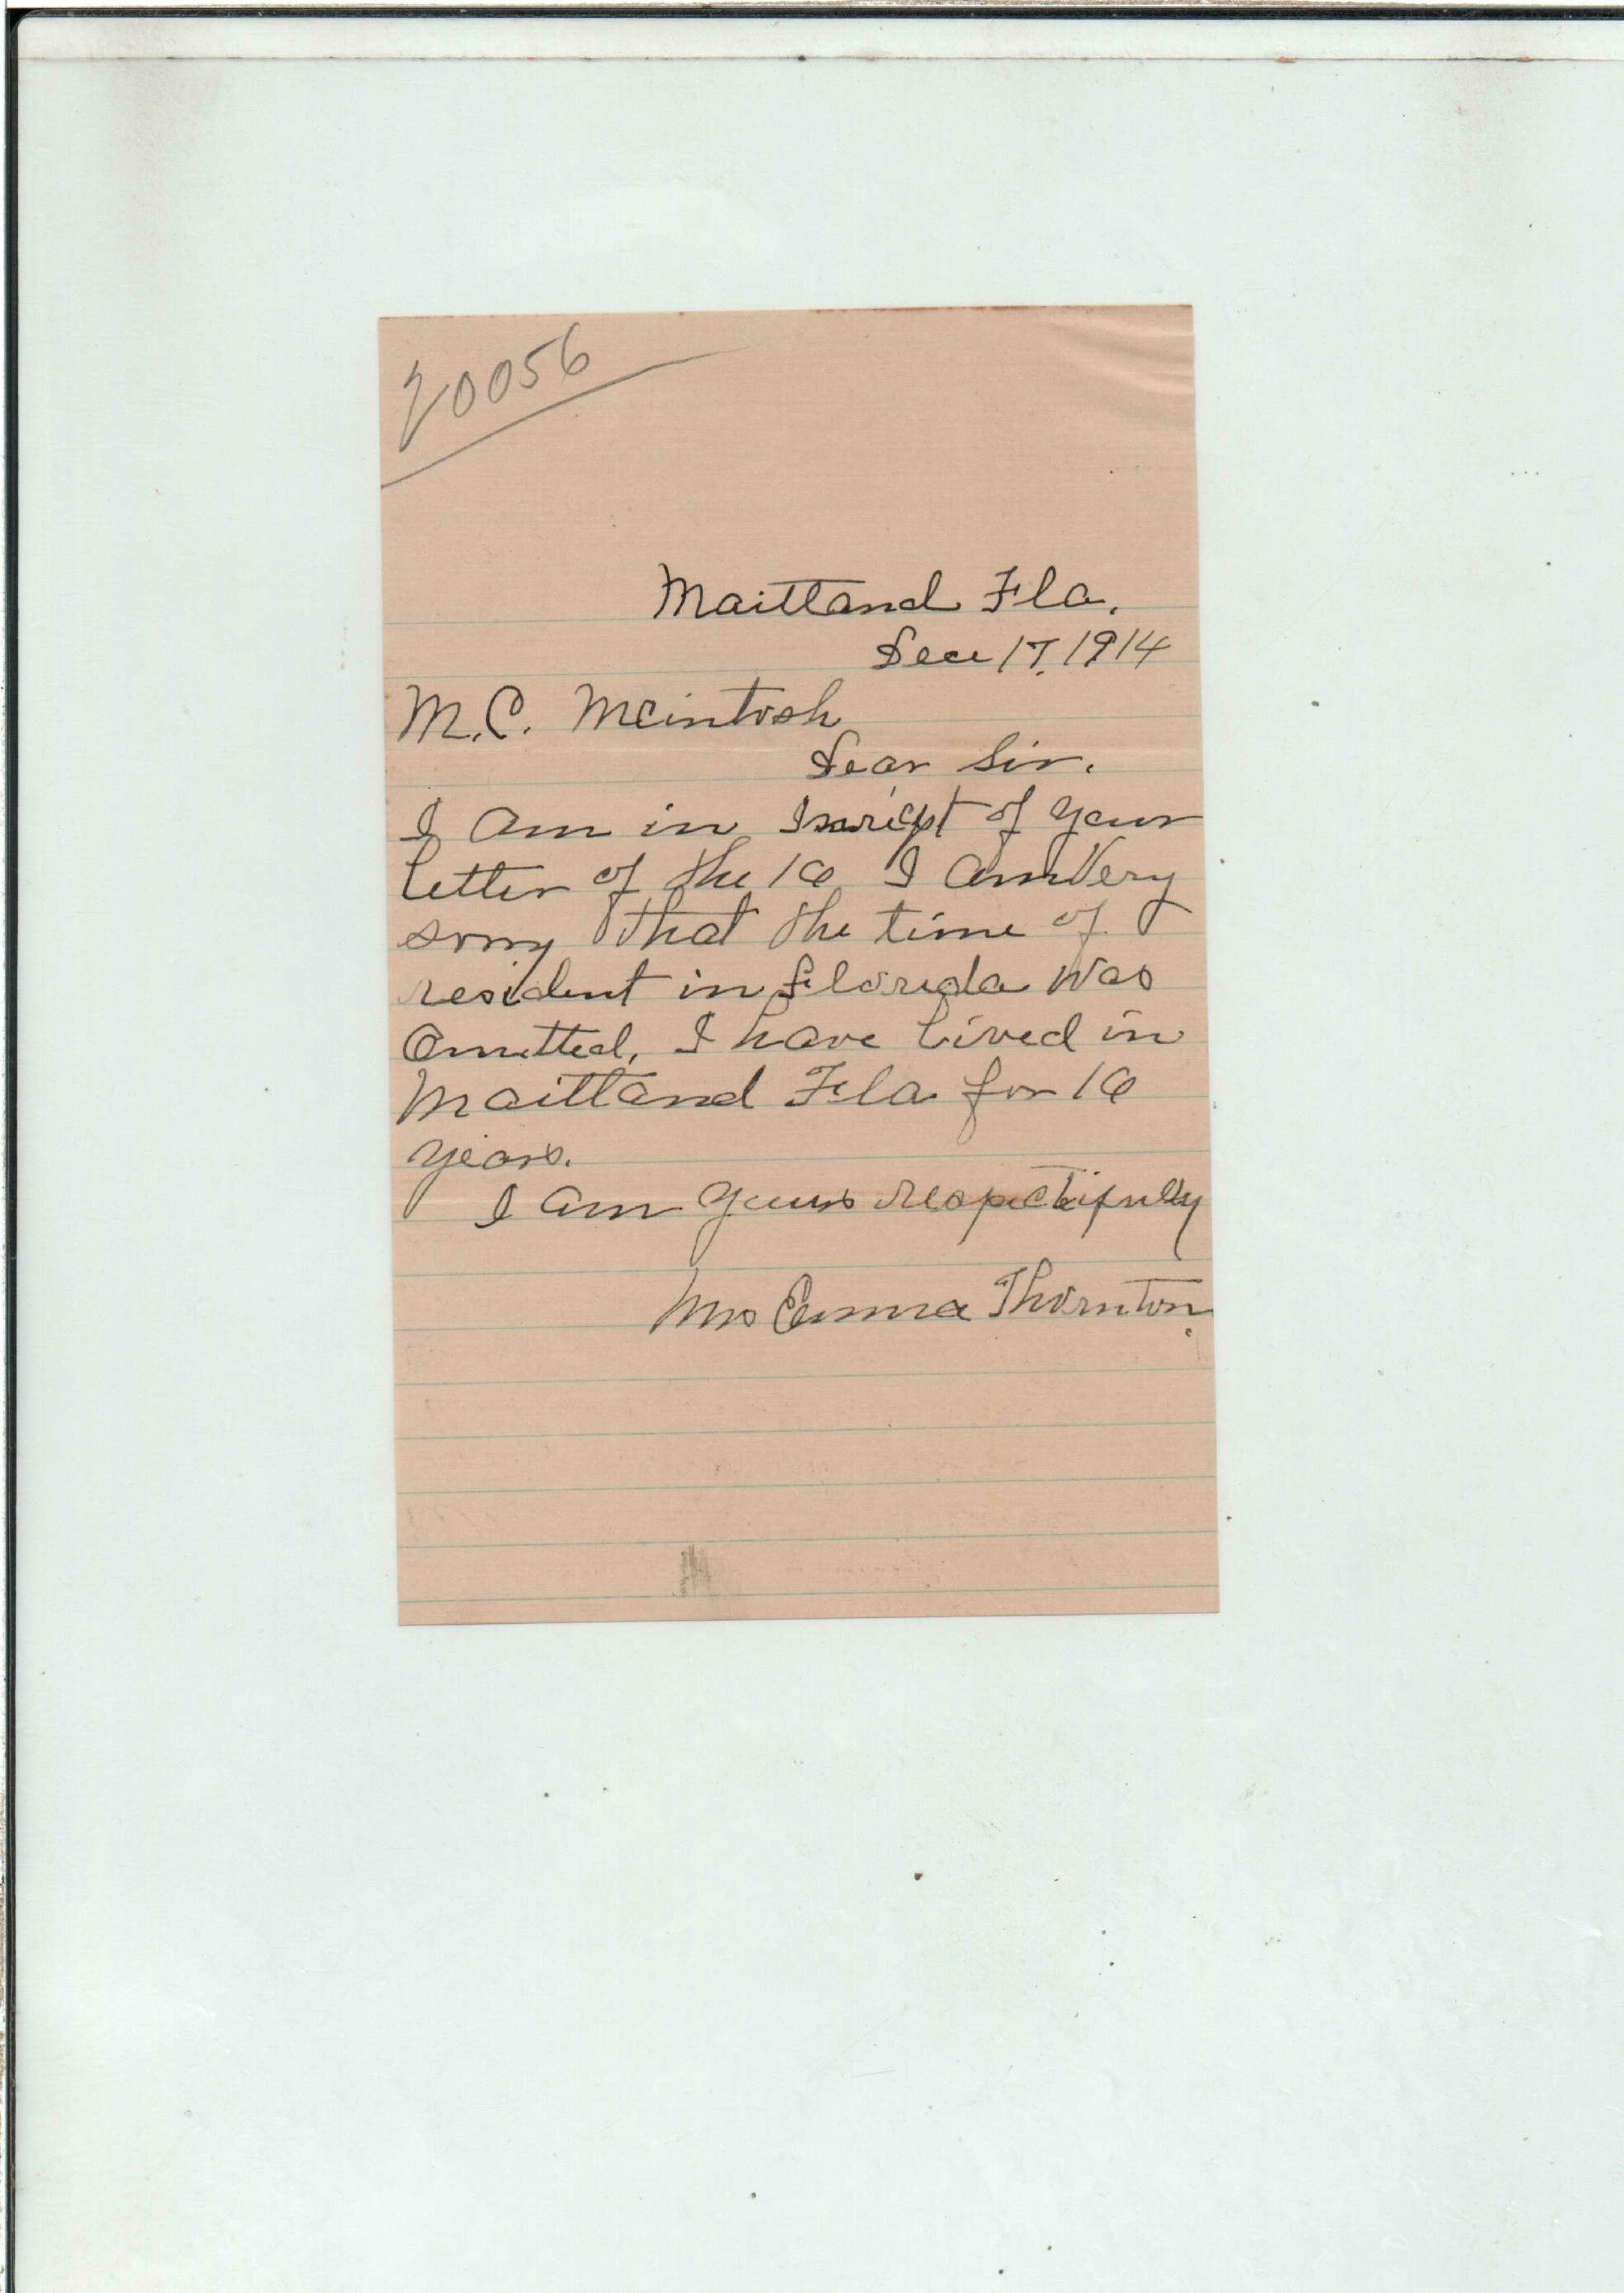 20056
Maitland Fla.
Dec 17. 1914
M.C. McIntosh
Dear Sir.
I Am in of your
letter of the 16 I Am Very
sorry that the time of
resident in Florida was
Omitted, I have Lived in
Maitland Fla for 16
years.
I Am yours respectifully
Mrs Emma Thornton.